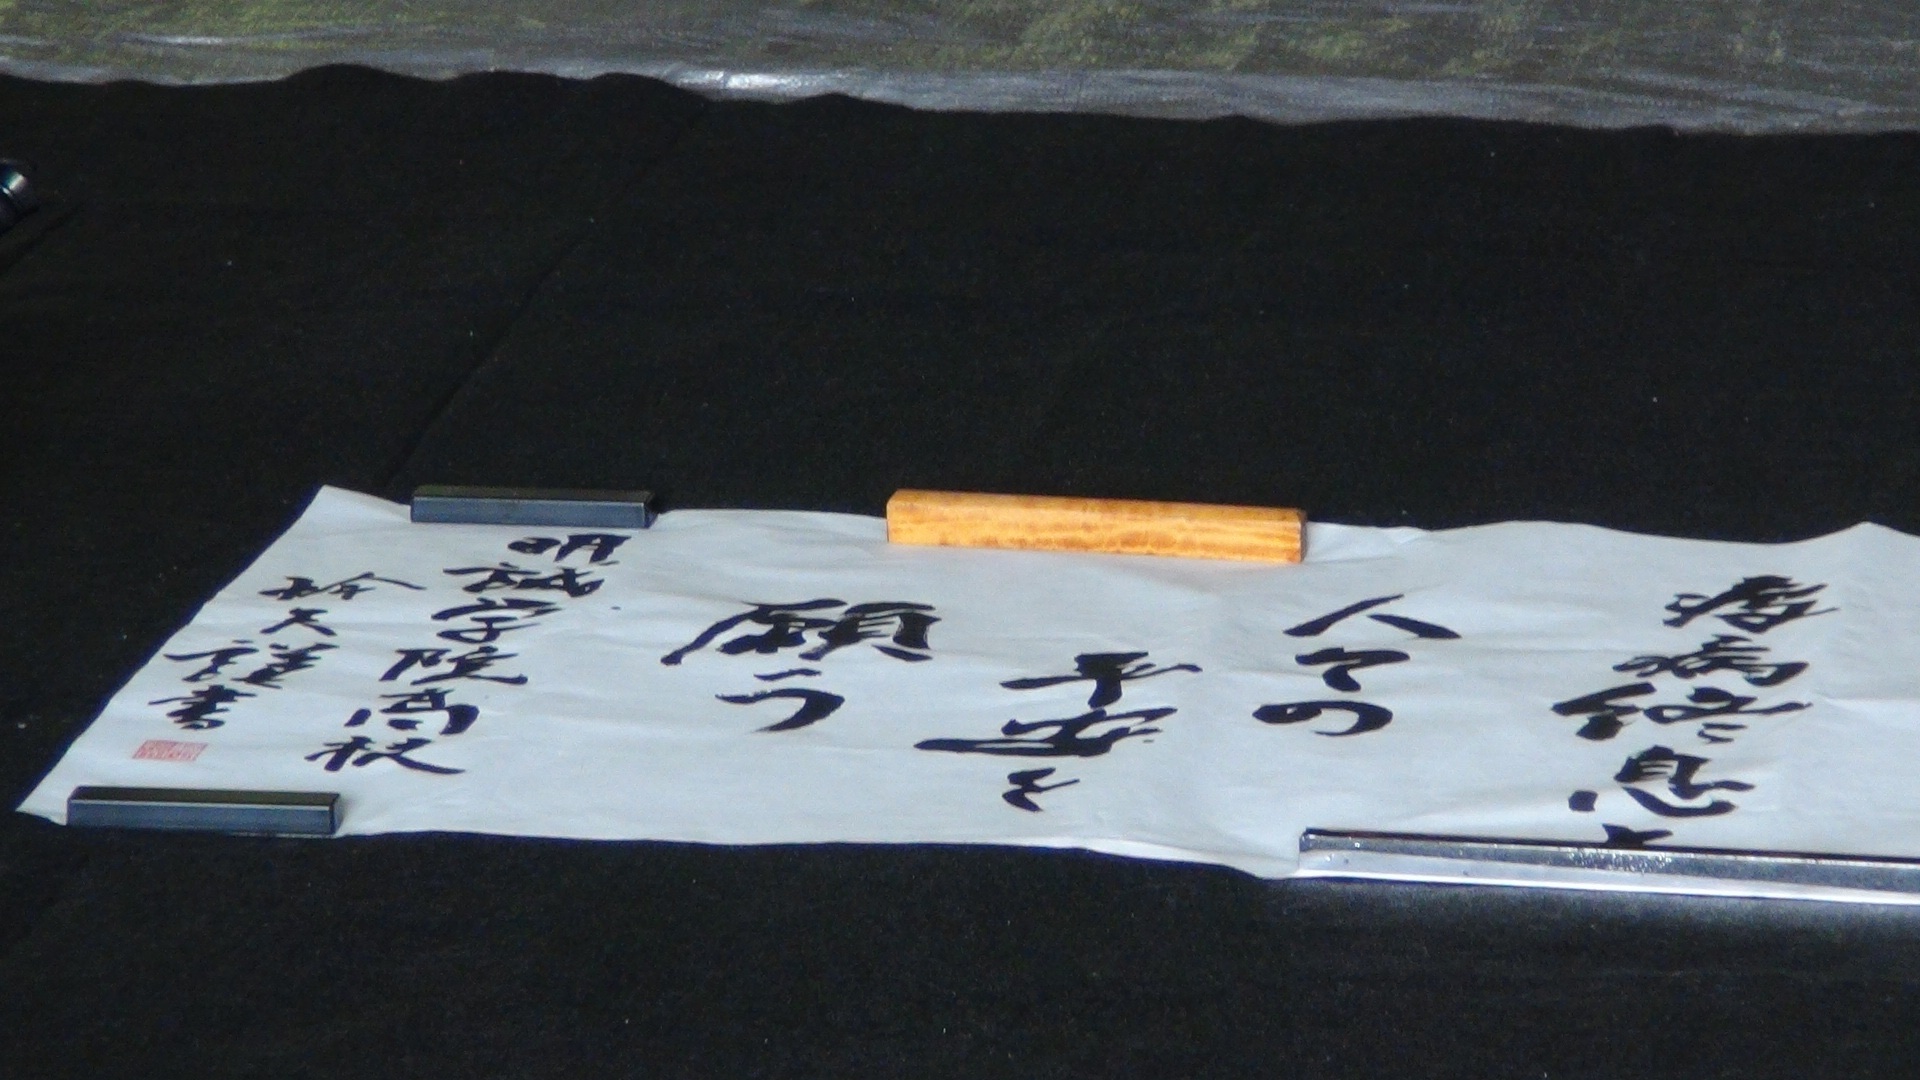 疫病終息と
人々の
平安を
願う
明誠学院高校
玲夫謹書